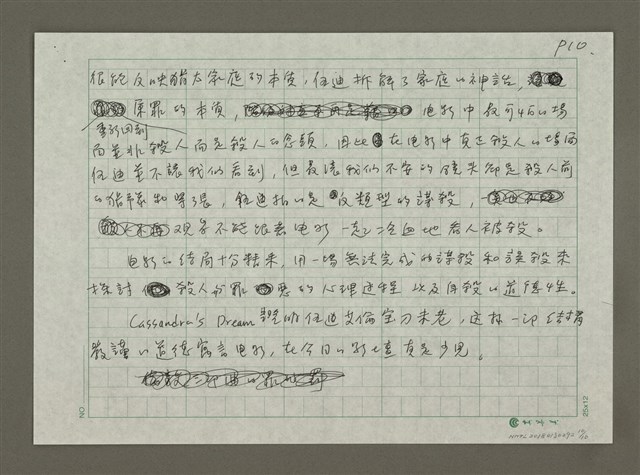 P10.
很能反映猶太家庭的本質，伍迪拆解了家庭的神話，
重新回到
原罪的本質，電影中最可怕的場
而並非殺人而是殺人的念頭，因此在电影中真正殺人的場面
伍迪並不讓我們看到，但最讓我們不安的鏡头卻是殺人前
的猶豫和緊張，伍迪拍的是反類型的謀殺，
观眾不能跟著电影一起冷血地看人被殺。
电影的结局十分精釆，用一場無法完成的謀殺和誤殺來
探討殺人和罪惡的心理过程以及自殺的道德性。
Cassandra's Dream 證明伍迪艾倫宝刀未老，這样一部结構
嚴謹的道德寓言电影，在今日的影壇真是少見。
NO.
25x12